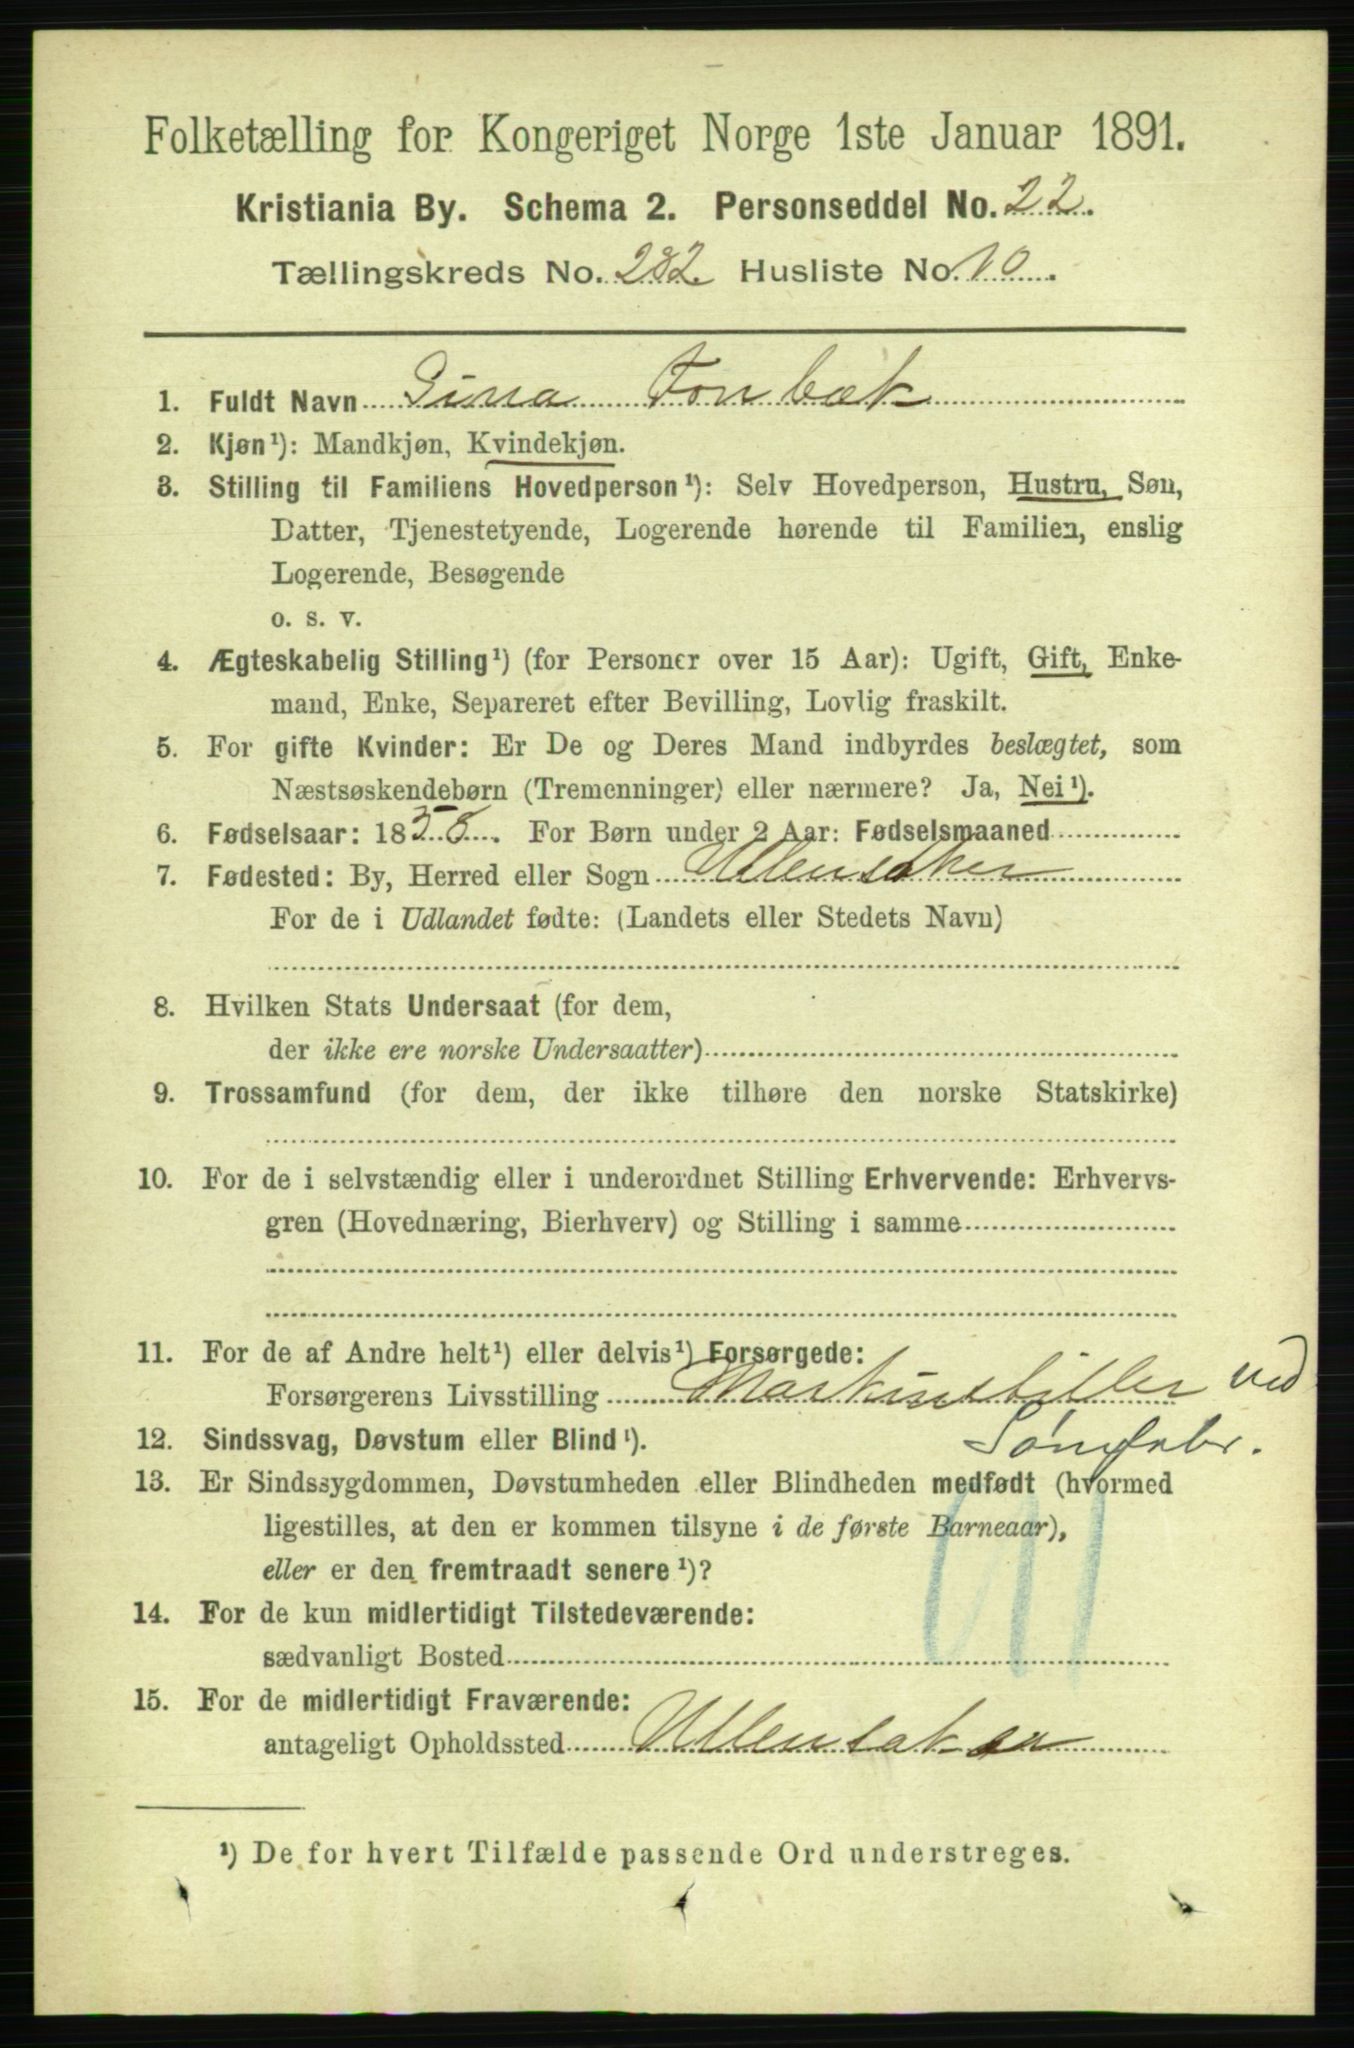 Folketælling for Kongeriget Norge 1ste Januar 1891.
Kristiania By. Schema 2. Personseddel No. 22.
Tællingskreds No. 282. Husliste No. 10.
1. Fuldt Navn Gina Fonbæk
2. Kjøn¹): Mandkjøn, Kvindekjøn.
3. Stilling til Familiens Hovedperson¹): Selv Hovedperson, Hustru, Søn,
Datter, Tjenestetyende, Logerende hørende til Familien, enslig
Logerende, Besøgende
o. s. v.
4. Ægteskabelig Stilling¹) (for Personer over 15 Aar): Ugift, Gift, Enke-
mand, Enke, Separeret efter Bevilling, Lovlig fraskilt.
5. For gifte Kvinder: Er De og Deres Mand indbyrdes beslægtet, som
Næstsøskendebørn (Tremenninger) eller nærmere? Ja, Nei¹).
6. Fødselsaar: 1858. For Børn under 2 Aar: Fødselsmaaned
7. Fødested: By, Herred eller Sogn Ullensaker
For de i Udlandet fødte: (Landets eller Stedets Navn)
8. Hvilken Stats Undersaat (for dem,
der ikke ere norske Undersaatter)
9. Trossamfund (for dem, der ikke tilhøre den norske Statskirke)
10. For de i selvstændig eller i underordnet Stilling Erhvervende: Erhvervs-
gren (Hovednæring, Bierhverv) og Stilling i samme
11. For de af Andre helt¹) eller delvis¹) Forsørgede:
Forsørgerens Livsstilling Maskinstiller ved
Sømfabr.
12. Sindssvag, Døvstum eller Blind¹).
13. Er Sindssygdommen, Døvstumheden eller Blindheden medfødt (hvormed
ligestilles, at den er kommen tilsyne i de første Barneaar),
eller er den fremtraadt senere¹)?
14. For de kun midlertidigt Tilstedeværende:
sædvanligt Bosted
15. For de midlertidigt Fraværende:
antageligt Opholdssted Ullensaker
¹) De for hvert Tilfælde passende Ord understreges.